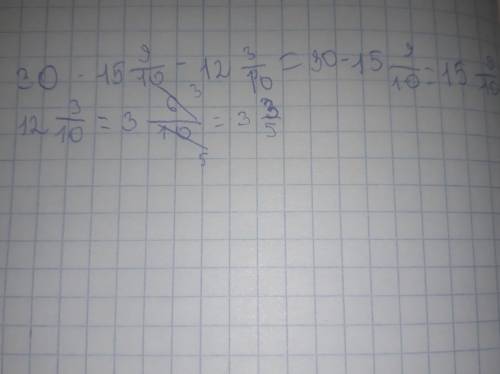 30 - 15 9/10 - 12 3/10 = 30 - 15 9/10 = 15
12 3/10 = 3 6/10 = 3 3/5